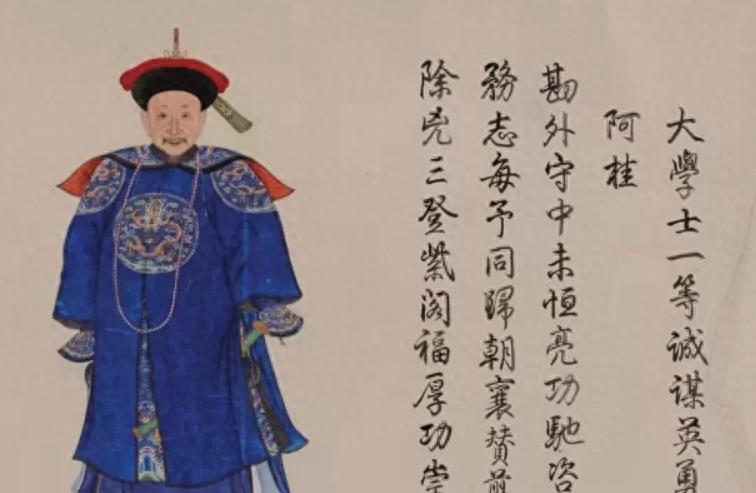 大學士一等誠謀英勇
阿桂
戡外守中未恒亮功馳咨
務志每予同歸朝襄贊
除兇三登紫閣福厚功崇